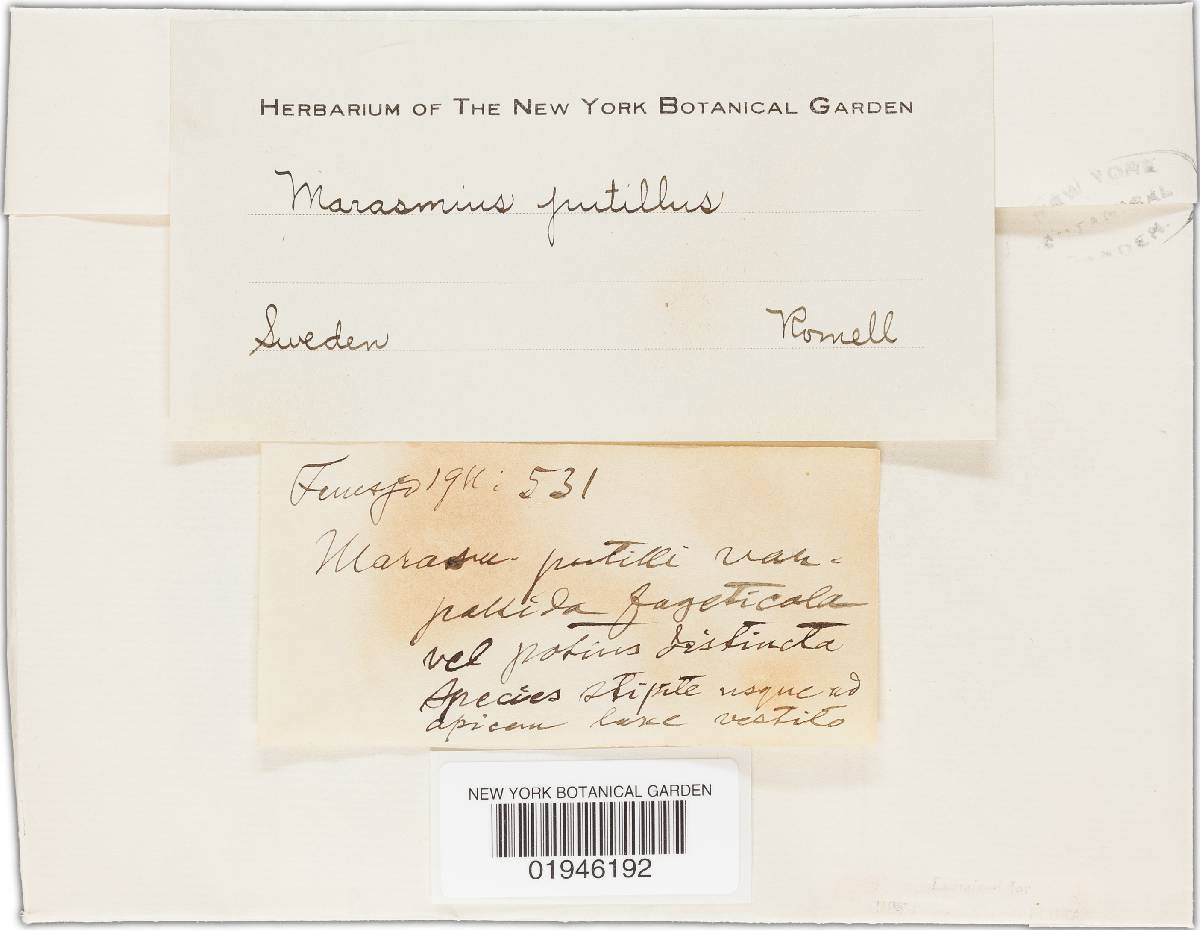 HERBARIUM OF THE NEW YORK BOTANICAL GARDEN
Marasmius putillus
Sweden Romell
1911: 531
putilli var.
pallida fageticola
vel potius distincta
species stipite usque ad
apicem laxe vestito
NEW YORK BOTANICAL GARDEN
01946192
NEW YORK
BOTANICAL
GARDEN